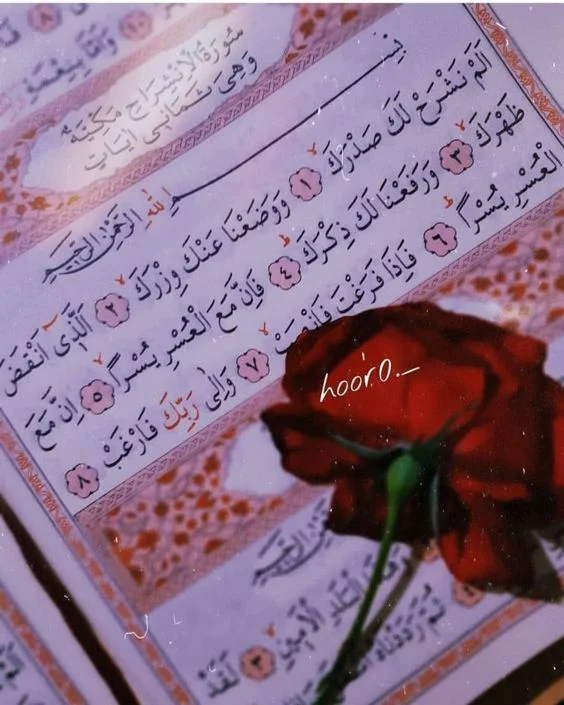 وَاَمَّا بِنِعْمَةِ
سُورَةُ الْاِنْشِرَاحِ مَكِّيَّةٌ
وَهِىَ ثَمَانِى اٰيَاتٍ
بِسْمِ اللهِ الرَّحْمٰنِ الرَّحِيمِ
اَلَمْ نَشْرَحْ لَكَ صَدْرَكَ ١ وَوَضَعْنَا عَنْكَ وِزْرَكَ ٢ اَلَّذِى اَنْقَضَ
ظَهْرَكَ ٣ وَرَفَعْنَا لَكَ ذِكْرَكَ ٤ فَاِنَّ مَعَ الْعُسْرِ يُسْراً ٥ اِنَّ مَعَ
الْعُسْرِ يُسْراً ٦ فَاِذَا فَرَغْتَ فَانْصَبْ ٧ وَاِلٰى رَبِّكَ فَارْغَبْ ٨
hooro._
الْبَلَدِ الْاَمِينِ ٣ لَقَدْ
ثُمَّ رَدَدْنَاهُ